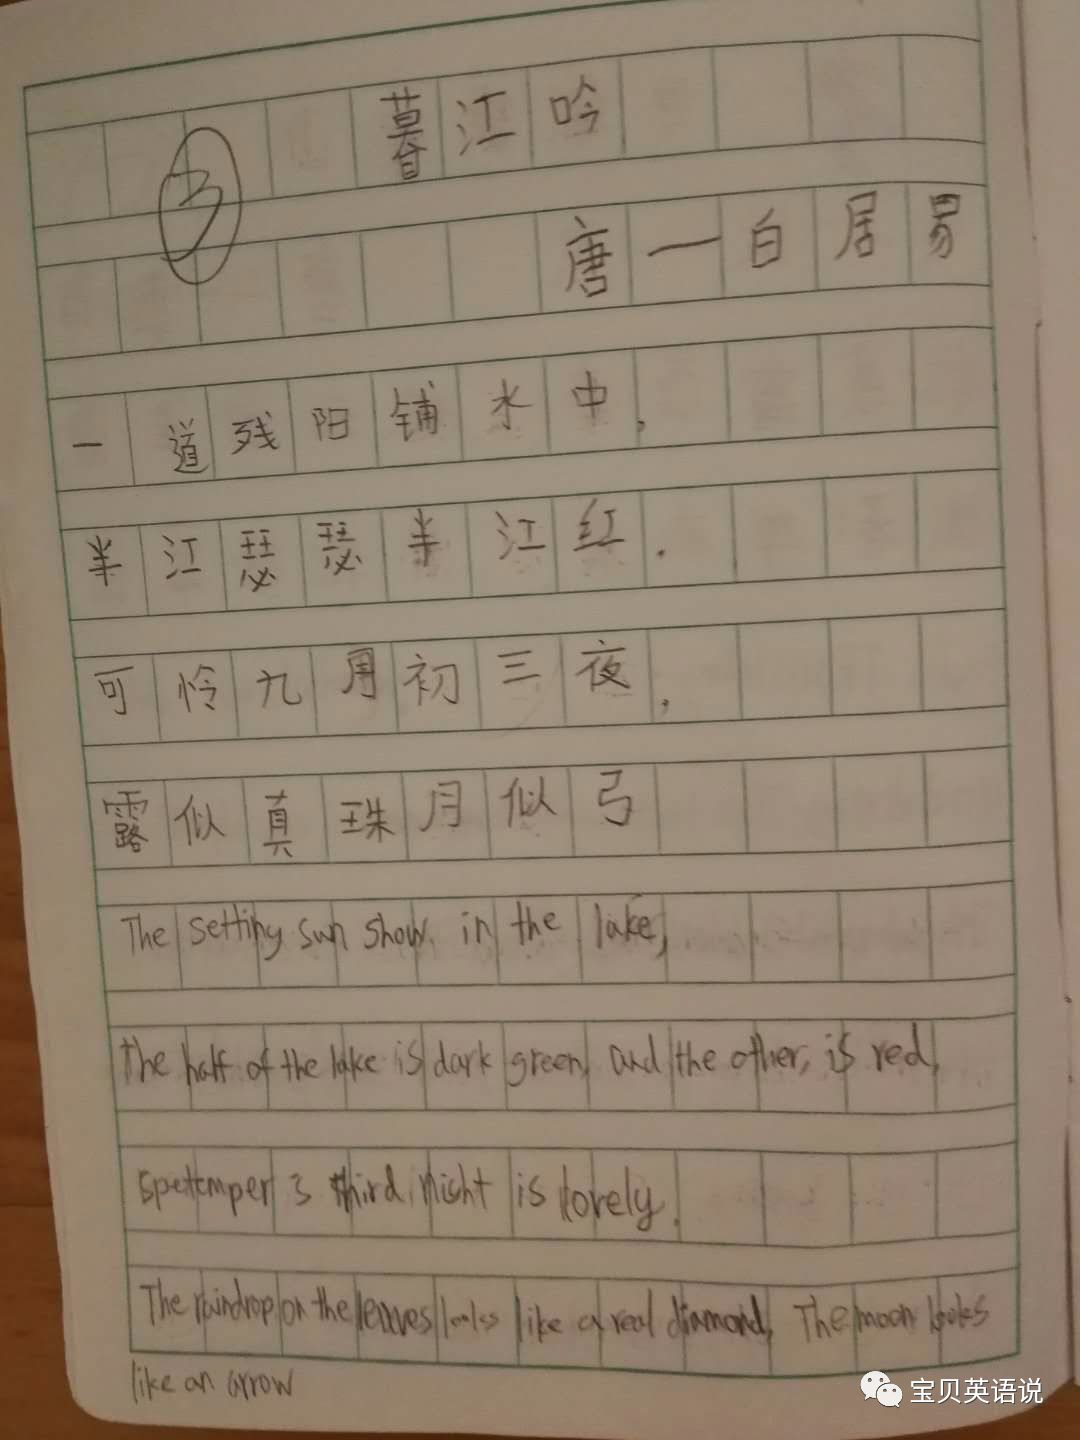 暮江吟
3
唐一白居易
一道残阳铺水中,
半江瑟瑟半江红.
可怜九月初三夜,
露似真珠月似弓
The setting sun show in the lake,
the half of the lake is dark green, and the other, is red,
Spetemper 3 third night is lovely.
The raindrop on the leaves looks like a real diamond, The moon looks
like an arrow
宝贝英语说